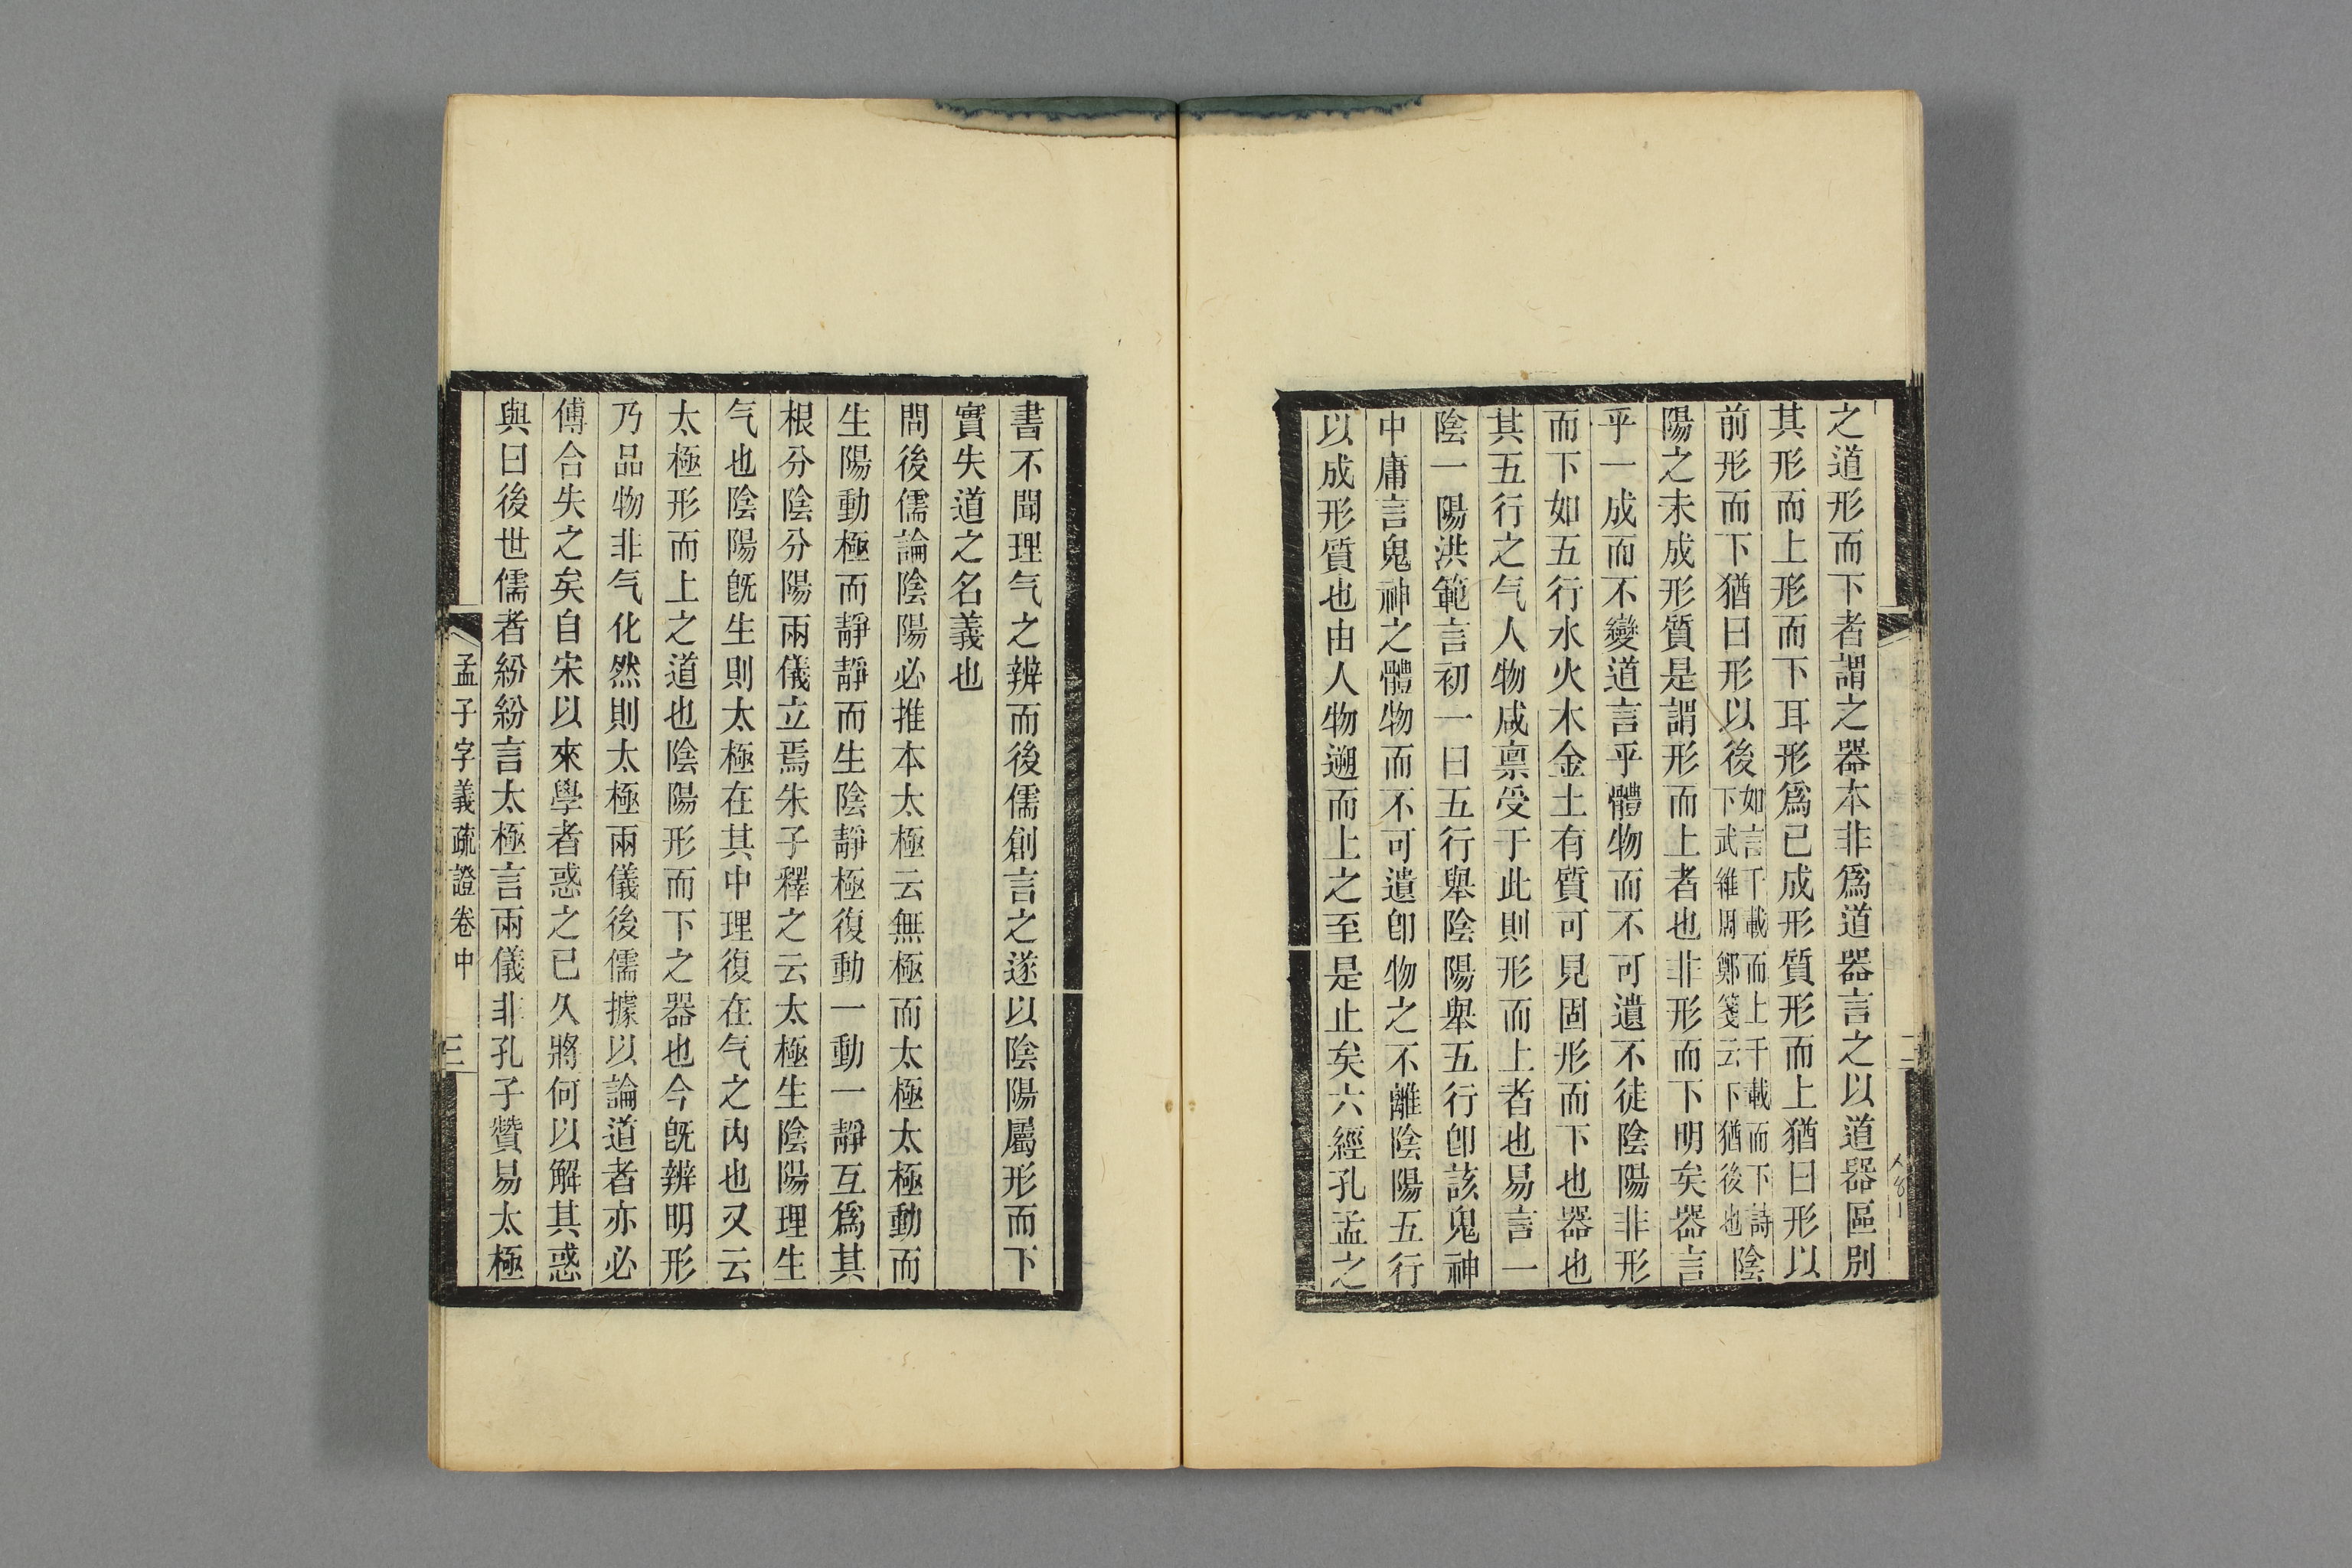 之道形而下者謂之器本非爲道器言之以道器區別
其形而上形而下耳形爲已成形質形而上猶曰形以
前形而下猶曰形以後如言千載而上千載而下詩下武維周鄭箋云下猶後也陰
陽之未成形質是謂形而上者也非形而下明矣器言
乎一成而不變道言乎體物而不可遺不徒陰陽非形
而下如五行水火木金土有質可見固形而下也器也
其五行之气人物咸稟受于此則形而上者也易言一
陰一陽洪範言初一曰五行舉陰陽舉五行卽該鬼神
中庸言鬼神之體物而不可遺卽物之不離陰陽五行
以成形質也由人物遡而上之至是止矣六經孔孟之
二
書不聞理气之辨而後儒創言之遂以陰陽屬形而下
實失道之名義也
問後儒論陰陽必推本太極云無極而太極太極動而
生陽動極而靜靜而生陰靜極復動一動一靜互爲其
根分陰分陽兩儀立焉朱子釋之云太極生陰陽理生
气也陰陽旣生則太極在其中理復在气之內也又云
太極形而上之道也陰陽形而下之器也今旣辨明形
乃品物非气化然則太極兩儀後儒據以論道者亦必
傅合失之矣自宋以來學者惑之已久將何以解其惑
與曰後世儒者紛紛言太極言兩儀非孔子贊易太極
孟子字義疏證卷中
三